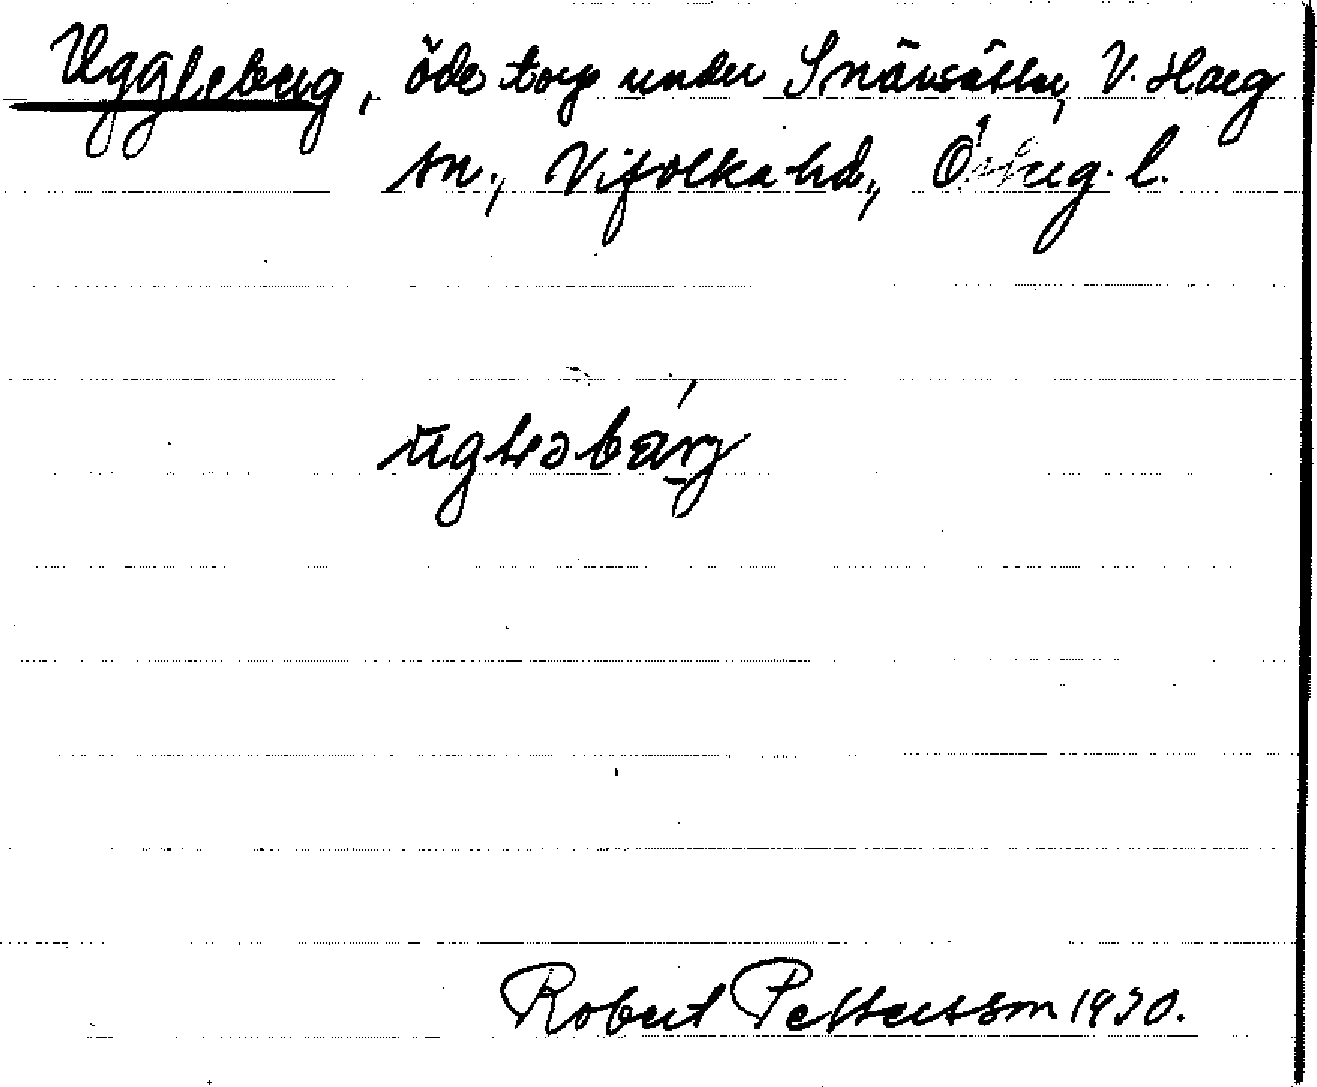 Uggleberg, öde torp under Snäresätter, V. Harg
sn., Vifolka hd., Österg. l.
Robert Pettersson 1930.